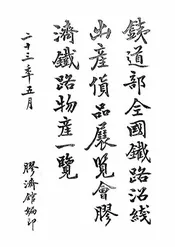 鐵道部全國鐵路沿綫
出產貨品展覧會膠
濟鐵路物產一覽
二十三年五月
膠濟館編印